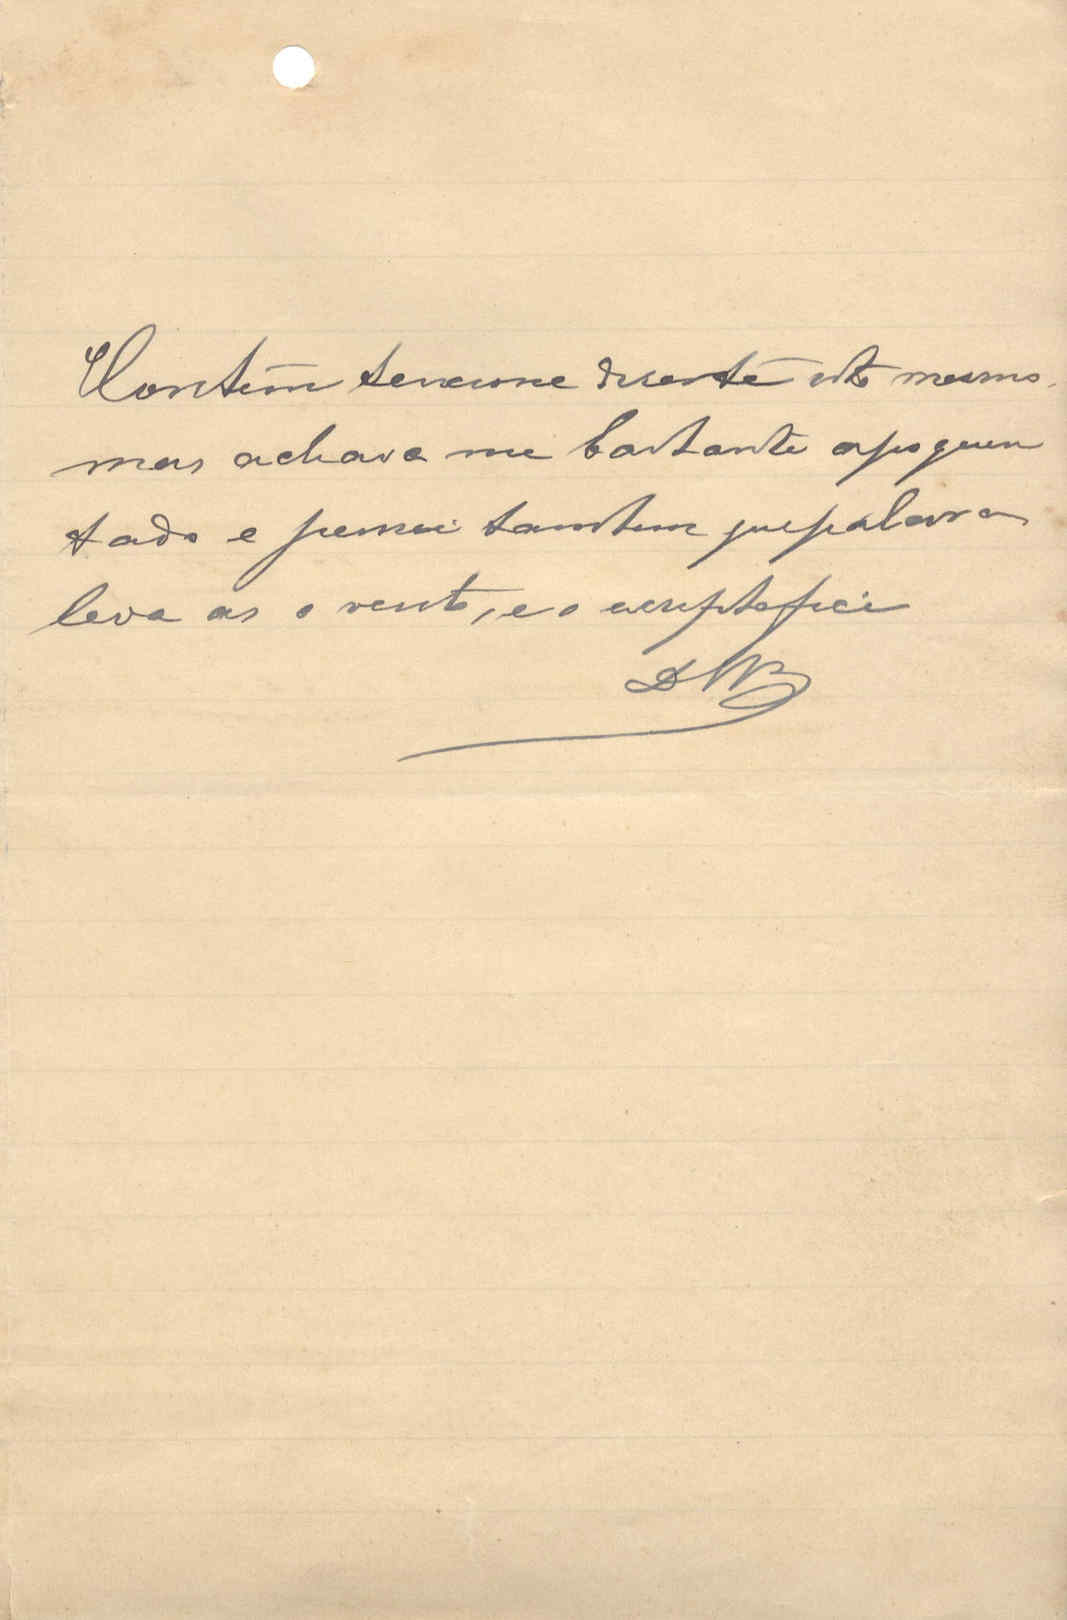 Hontem tencione diser te isto mesmo.
mas achava me bastante apoquen
tado e pensei tambem que palavras
leva as o vento, e o escripto fica
DWB